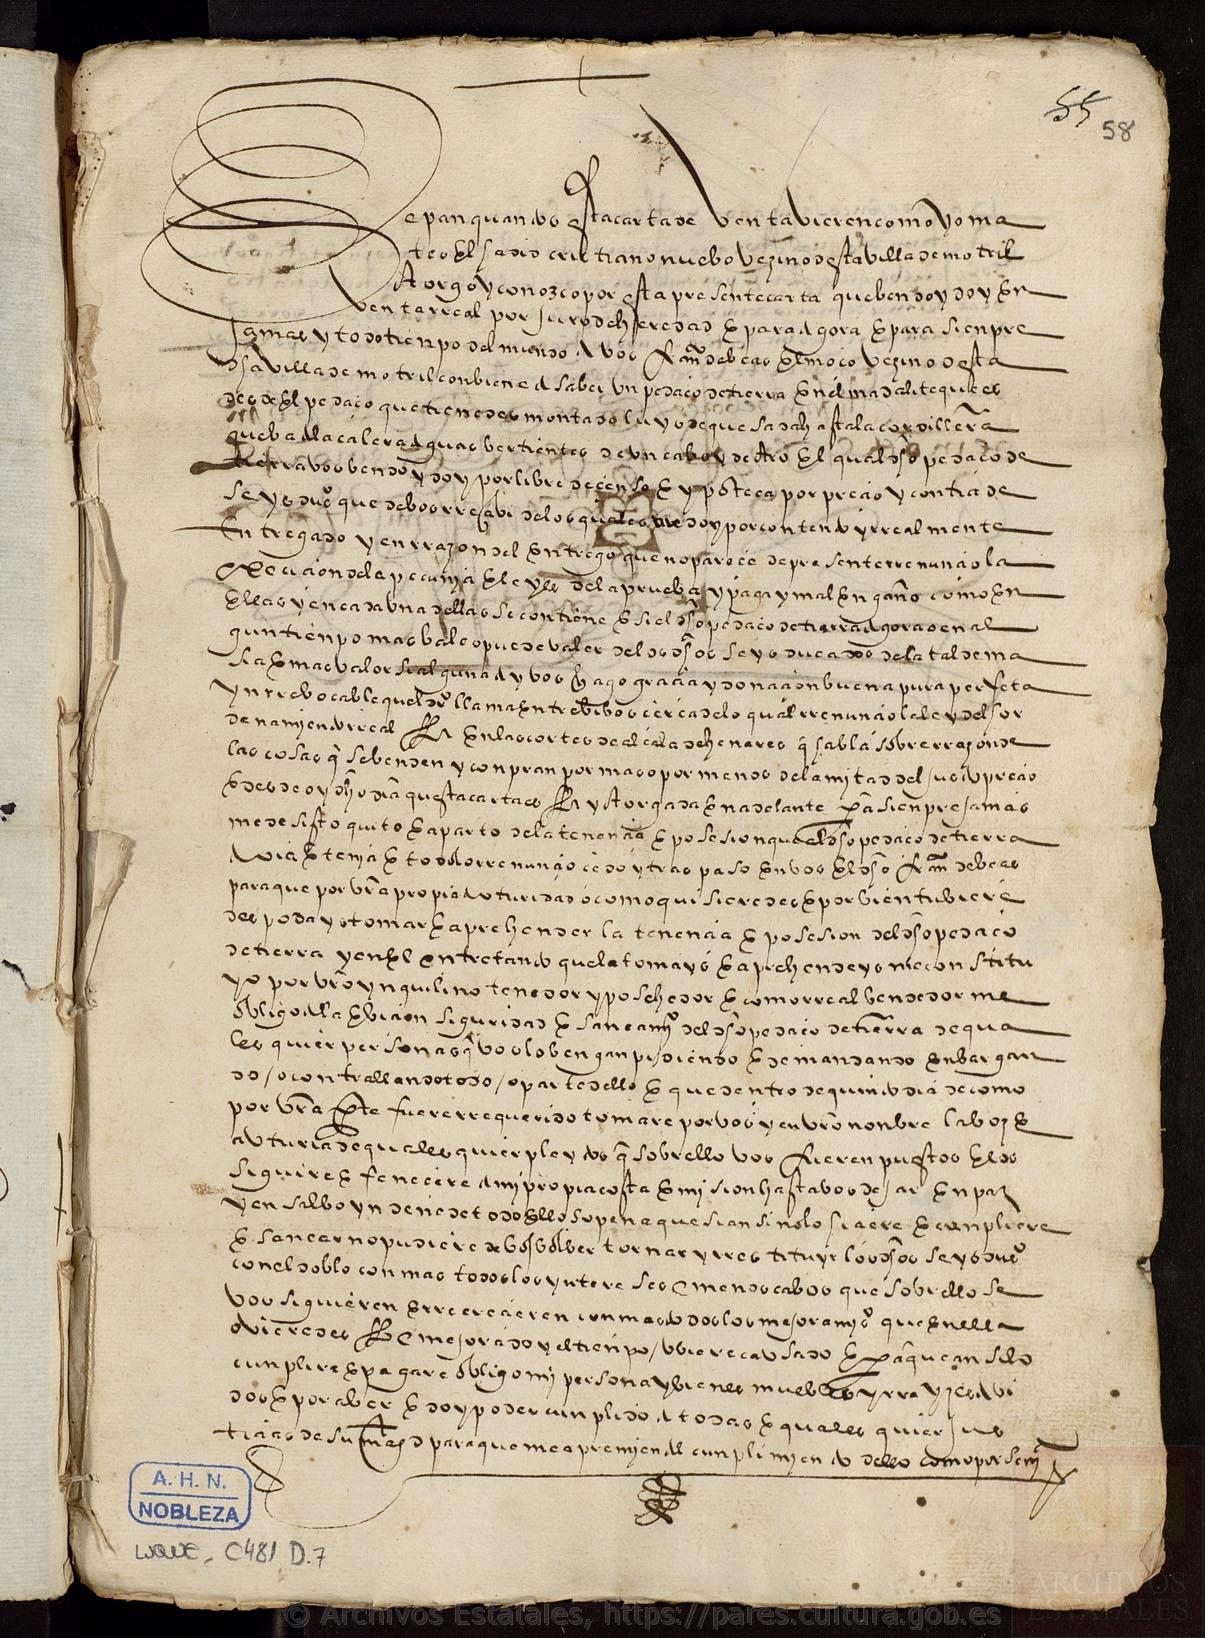 55
58
Sepan quantos esta carta de venta vieren como yo ma
teo el  cristiano nuebo vezino desta villa de motril
otorgo y conozco por esta presente carta que bendo y doy en
venta rreal por juro de heredad e para agora e para sienpre
jamas y todo tienpo del mundo a vos franco de beas el moço vezino desta
dha villa de motril conbiene a saber un pedaço de tierra en el  que es
desde el pedaço que teneys desmontado  de  hasta la cordillera
que ba a la calera aguas bertientes de un cabo y de otro el qual dho pedaço de
tierra vos bendo y doy por libre de censo e ypoteca por precio y contia de
seys duos que de bos rresçebi de los quales me doy por contento y rrealmente
entregado y en rrazon del entrego que no pareçe de presente rrenunçio la
exeçion de la pecunia e leyes de la prueba y paga y mal engaño como en
ellas y en cada una dellas se contiene e si el dho pedaço de tierra agora o en al
gun tienpo mas bale o puede valer de los dhos seys ducados de la tal dema
sia e mas valor si alguna ay vos hago graçia y donaçion buena pura perfeta
ynrrebocable quel dro llama entre bibos çerca de lo qual rrenunçio la ley del hor
denamiento rreal fha en las cortes de alcala de henares q habla sobre rrazon de
las cosas q se benden y conpran por mas o por menos de la mitad del justo preçio
e desde oy dho dia questa carta es fha y otorgada en adelante pa sienpre jamas
me desisto quito e aparto de la tenençia e posesion que al dho pedaço de tierra
avia e tenia e todo lo rrenunçio çedo y traspaso en vos el dho franco de beas
para que por vra propia auturidad o como quisieredes e por bien tubiere
des podays tomar e aprehender la tenençia e posesion del dho pedaço
de tierra y en el entretanto que la tomays e aprehendeys me constitu
yo por vro ynquilino tenedor y posehedor e como rreal bendedor me
obligo a la ebiçion siguridad e saneamyo del dho pedaço de tierra de qua
les quier personas q vos lo bengan pidiendo e demandando enbargan
do / o contrallando todo / o parte dello e que dentro de quinto dia de como
por vra pte fuere rrequerido tomare por vos y en vro nonbre la boz e
auturia de quales quier pleytos q sobrello vos fueren puestos e los
siguire e feneçere a mi propia costa e mision hasta vos dexar en paz
y en salbo yndene de todo ello so pena que si ansi no lo hiçiere e cunpliere
e sanear no pudiere de vos bolber tornar y rrestituyr los dhos seys duos
con el doblo con mas todos los yntereses e menoscabos que sobrello se
vos siguieren e rrecreçieren con mas todos los mejoramyos que en ella
ovieredes fho e mejorado y el tienpo / ubiere causado e pa que ansi lo
cunplire e pagare obligo mi persona y bienes muebles y rrayzes abi
dos e por aber e doy poder cunplido a todas e quales quier jus
tiçias de su magd para que me apremien al cunplimiento dello como por senta
A. H. N.
NOBLEZA
LUQUE, C481 D.7
© Archivos Estatales, https://pares.cultura.gob.es
ARCHIVOS
ESTATALES